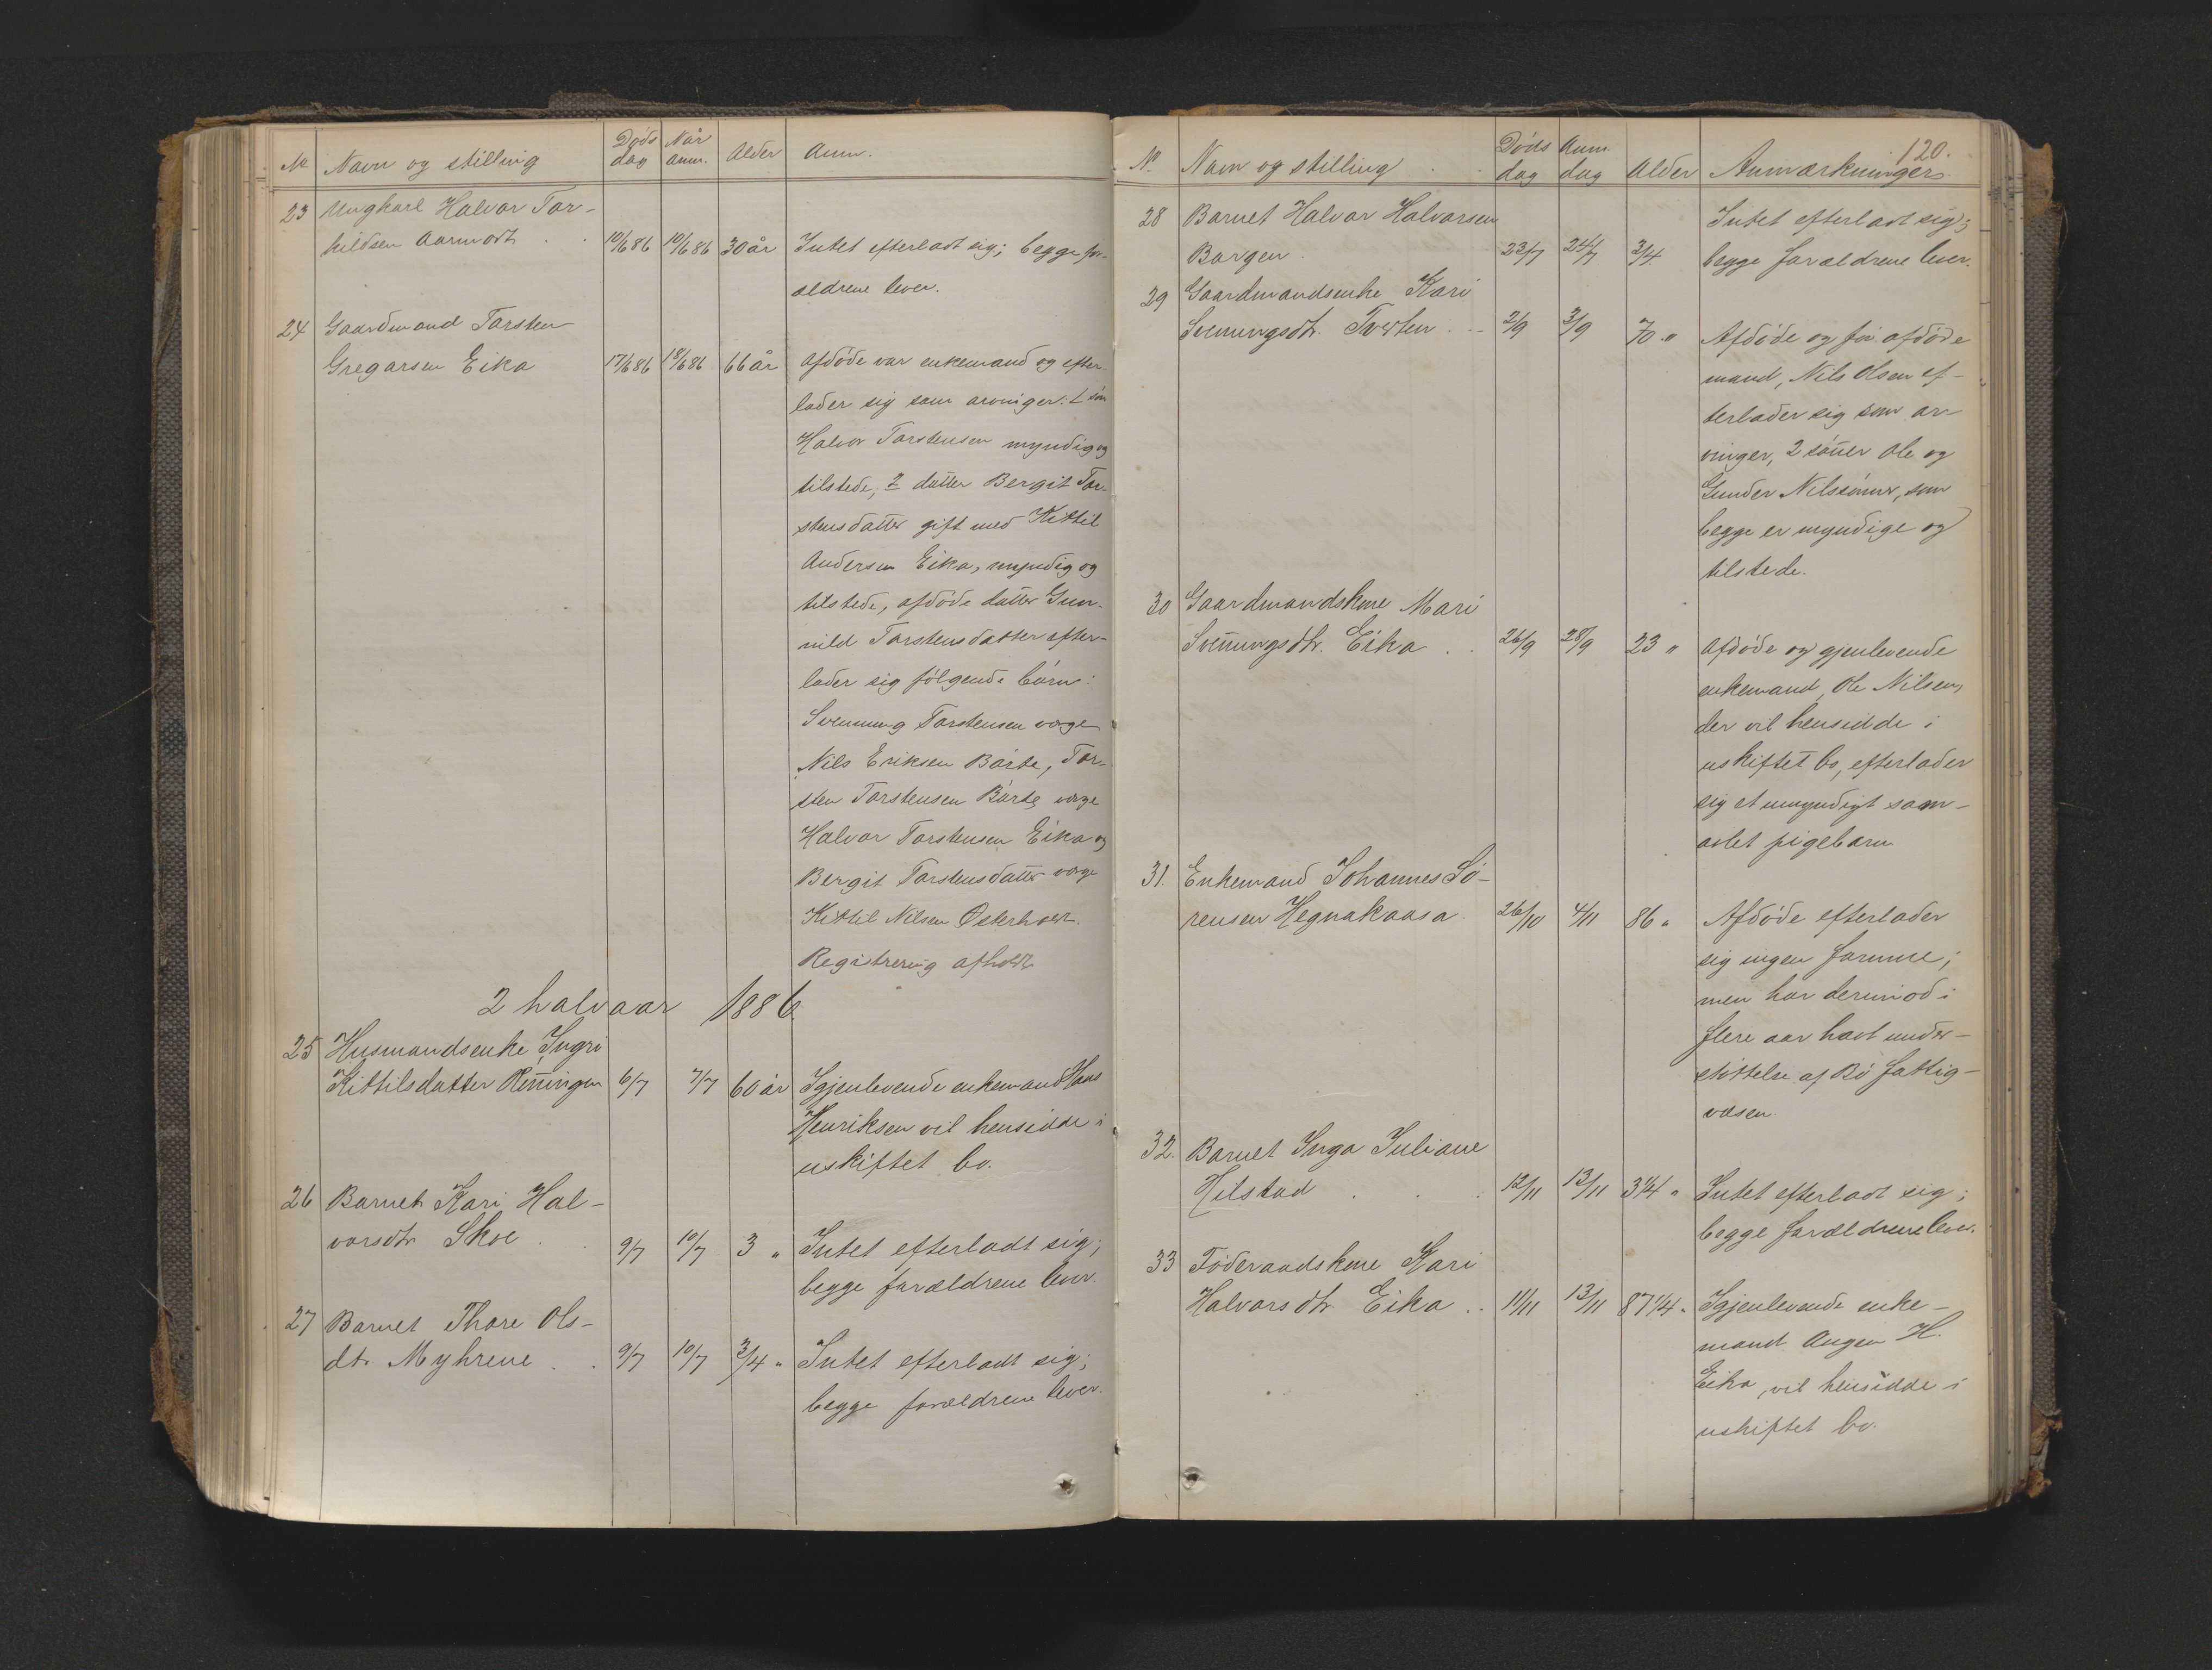 № Navn og stilling Døds dag Når anm. Alder Anm.
23 Ungkarl Halvor Tor-
kildsen Aarmodt . . 10/6 86 10/6 86 30 år Intet efterladt sig; begge for-
ældrene lever.
24 Gaardmand Torsten
Gregarsen Eika 17/6 86 18/6 86 66 år Afdøde var enkemand og efter-
lader sig som arvinger: 1 søn
Halvor Torstensen myndig og
tilstede, 2 datter Bergit Tor-
stensdatter gift med Kittil
Andersen Eika, myndig og
tilstede, afdøde datter Gun-
nild Torstensdatter efter-
lader sig følgende børn:
Svenung Torstensen værge
Nils Eriksen Børte, Tor-
sten Torstensen Børte, værge
Halvor Torstensen Eika og
Bergit Torstensdatter værge
Kittil Nilsen Østerholt.
Registrering afholdt
2 halvaar 1886.
25 Husmandsenke Ingri
Kittilsdatter Rønningen 6/7 7/7 60 år Igjenlevende enkemand Hans
Henriksen vil hensidde i
uskiftet bo.
26 Barnet Kari Hal-
vorsdtr Skoe . . 9/7 10/7 3 " Intet efterladt sig;
begge forældrene lever.
27 Barnet Thore Ols-
dtr Myhrene . . 9/7 10/7 3/4 " Intet efterladt sig;
begge forældrene lever.
120.
№ Navn og stilling Døds dag Anm. dag Alder Anmærkninger
28 Barnet Halvor Halvorsen Intet efterladt sig;
Borgen . 23/7 24/7 3/4 begge forældrene lever.
29 Gaardmandsenke Kari
Svenungsdtr. Tveten . . 2/9 3/9 70 " Afdøde og før afdøde
mand, Nils Olsen ef-
terlader sig som ar-
vinger, 2 sønner Ole og
Gunder Nilssønner, som
begge er myndige og
tilstede.
30 Gaardmandskone Mari
Svenungsdtr. Eika . . 26/9 28/9 23 " Afdøde og gjenlevende
enkemand, Ole Nilsen,
der vil hensidde i
uskiftet bo, efterlader
sig et umyndigt sam-
avlet pigebarn
31. Enkemand Johannes Sø-
rensen Hegnakaasa . 26/10 4/11 86 " Afdøde efterlader
sig ingen formue;
men har derimod i
flere aar havt under-
støttelse af Bø fattig-
væsen.
32. Barnet Inga Juliane
Hilstad . . . 12/11 13/11 3 1/4 " Intet efterladt sig;
begge forældrene lever.
33 Føderaadskone Kari
Halvorsdtr. Eika . . 11/11 13/11 87 1/4 " Igjenlevende enke-
mand Augen H.
Eika, vil hensidde i
uskiftet bo.